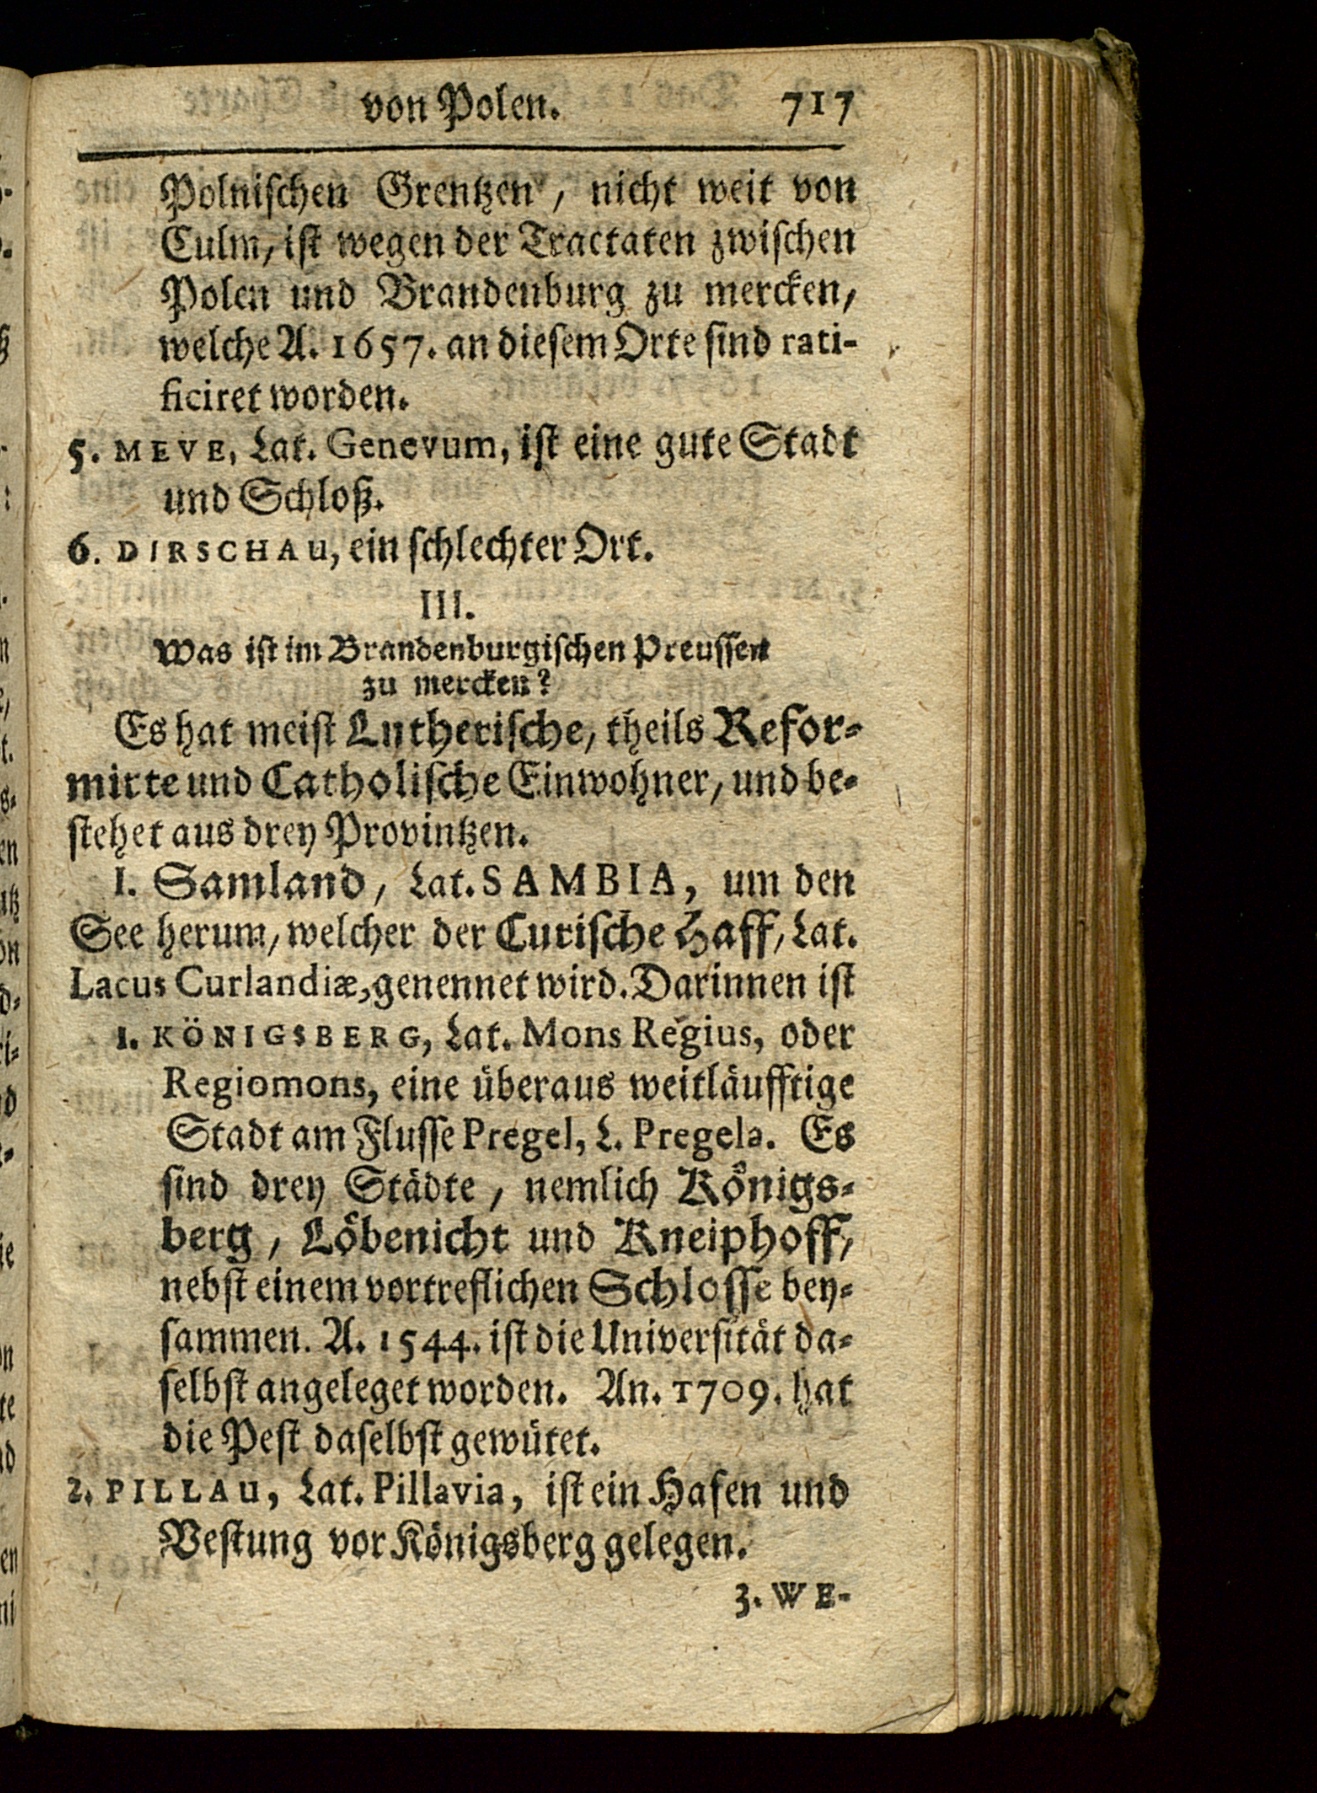 von Polen. 717
Polnischen Grentzen, nicht weit von
Culm, ist wegen der Tractaten zwischen
Polen und Brandenburg zu mercken,
welche A. 1657. an diesem Orte sind rati-
ficiret worden.
5. MEVE, Lat. Genevum, ist eine gute Stadt
und Schloß.
6. DIRSCHAU, ein schlechter Ort.
III.
Was ist im Brandenburgischen Preussen
zu mercken?
Es hat meist Lutherische, theils Refor-
mirte und Catholische Einwohner, und be-
stehet aus drey Provintzen.
I. Samland, Lat. SAMBIA, um den
See herum, welcher der Curische Haff, Lat.
Lacus Curlandiæ, genennet wird. Darinnen ist
1. KÖNIGSBERG, Lat. Mons Regius, oder
Regiomons, eine überaus weitläufftige
Stadt am Flusse Pregel, L. Pregela. Es
sind drey Städte, nemlich Königs-
berg, Löbenicht und Kneiphoff,
nebst einem vortreflichen Schlosse bey-
sammen. A. 1544. ist die Universität da-
selbst angeleget worden. An. 1709. hat
die Pest daselbst gewütet.
2. PILLAU, Lat. Pillavia, ist ein Hafen und
Vestung vor Königsberg gelegen.
3. WE-